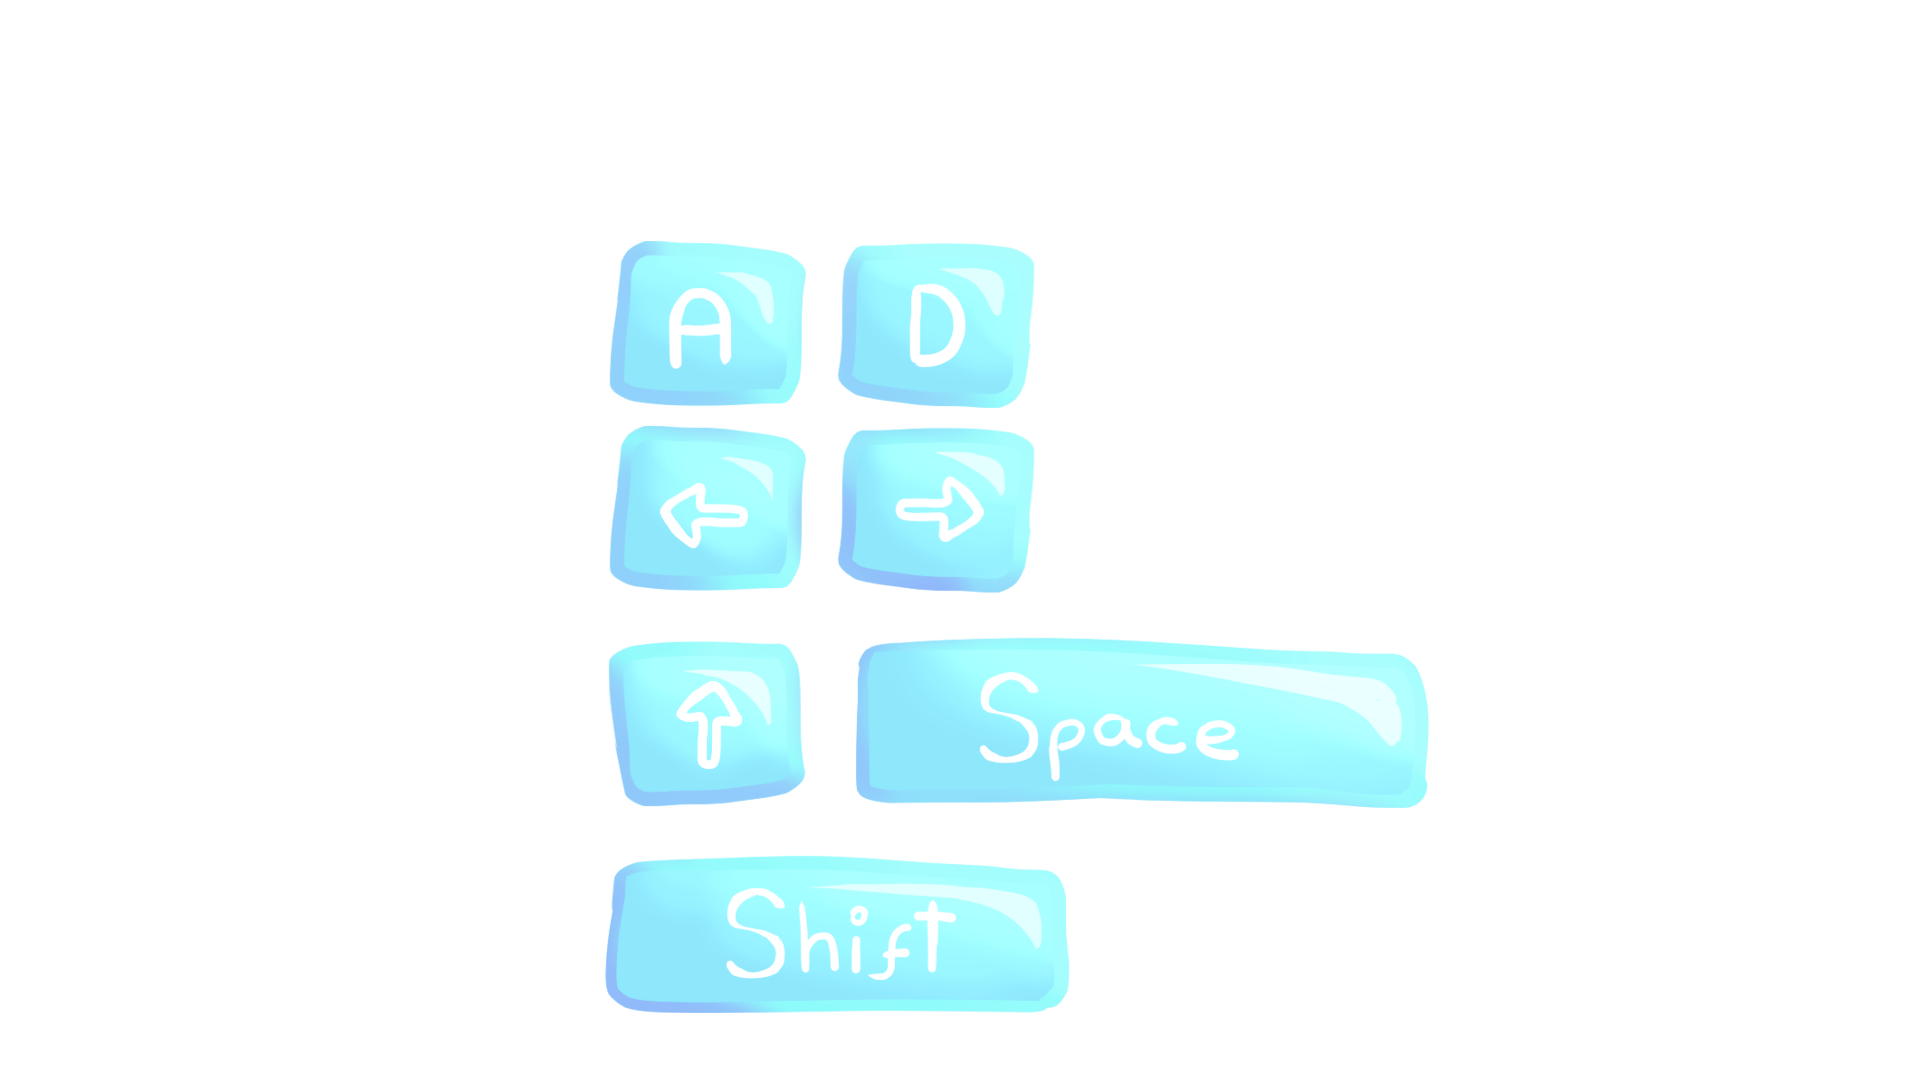 A D
← →
↑ Space
Shift